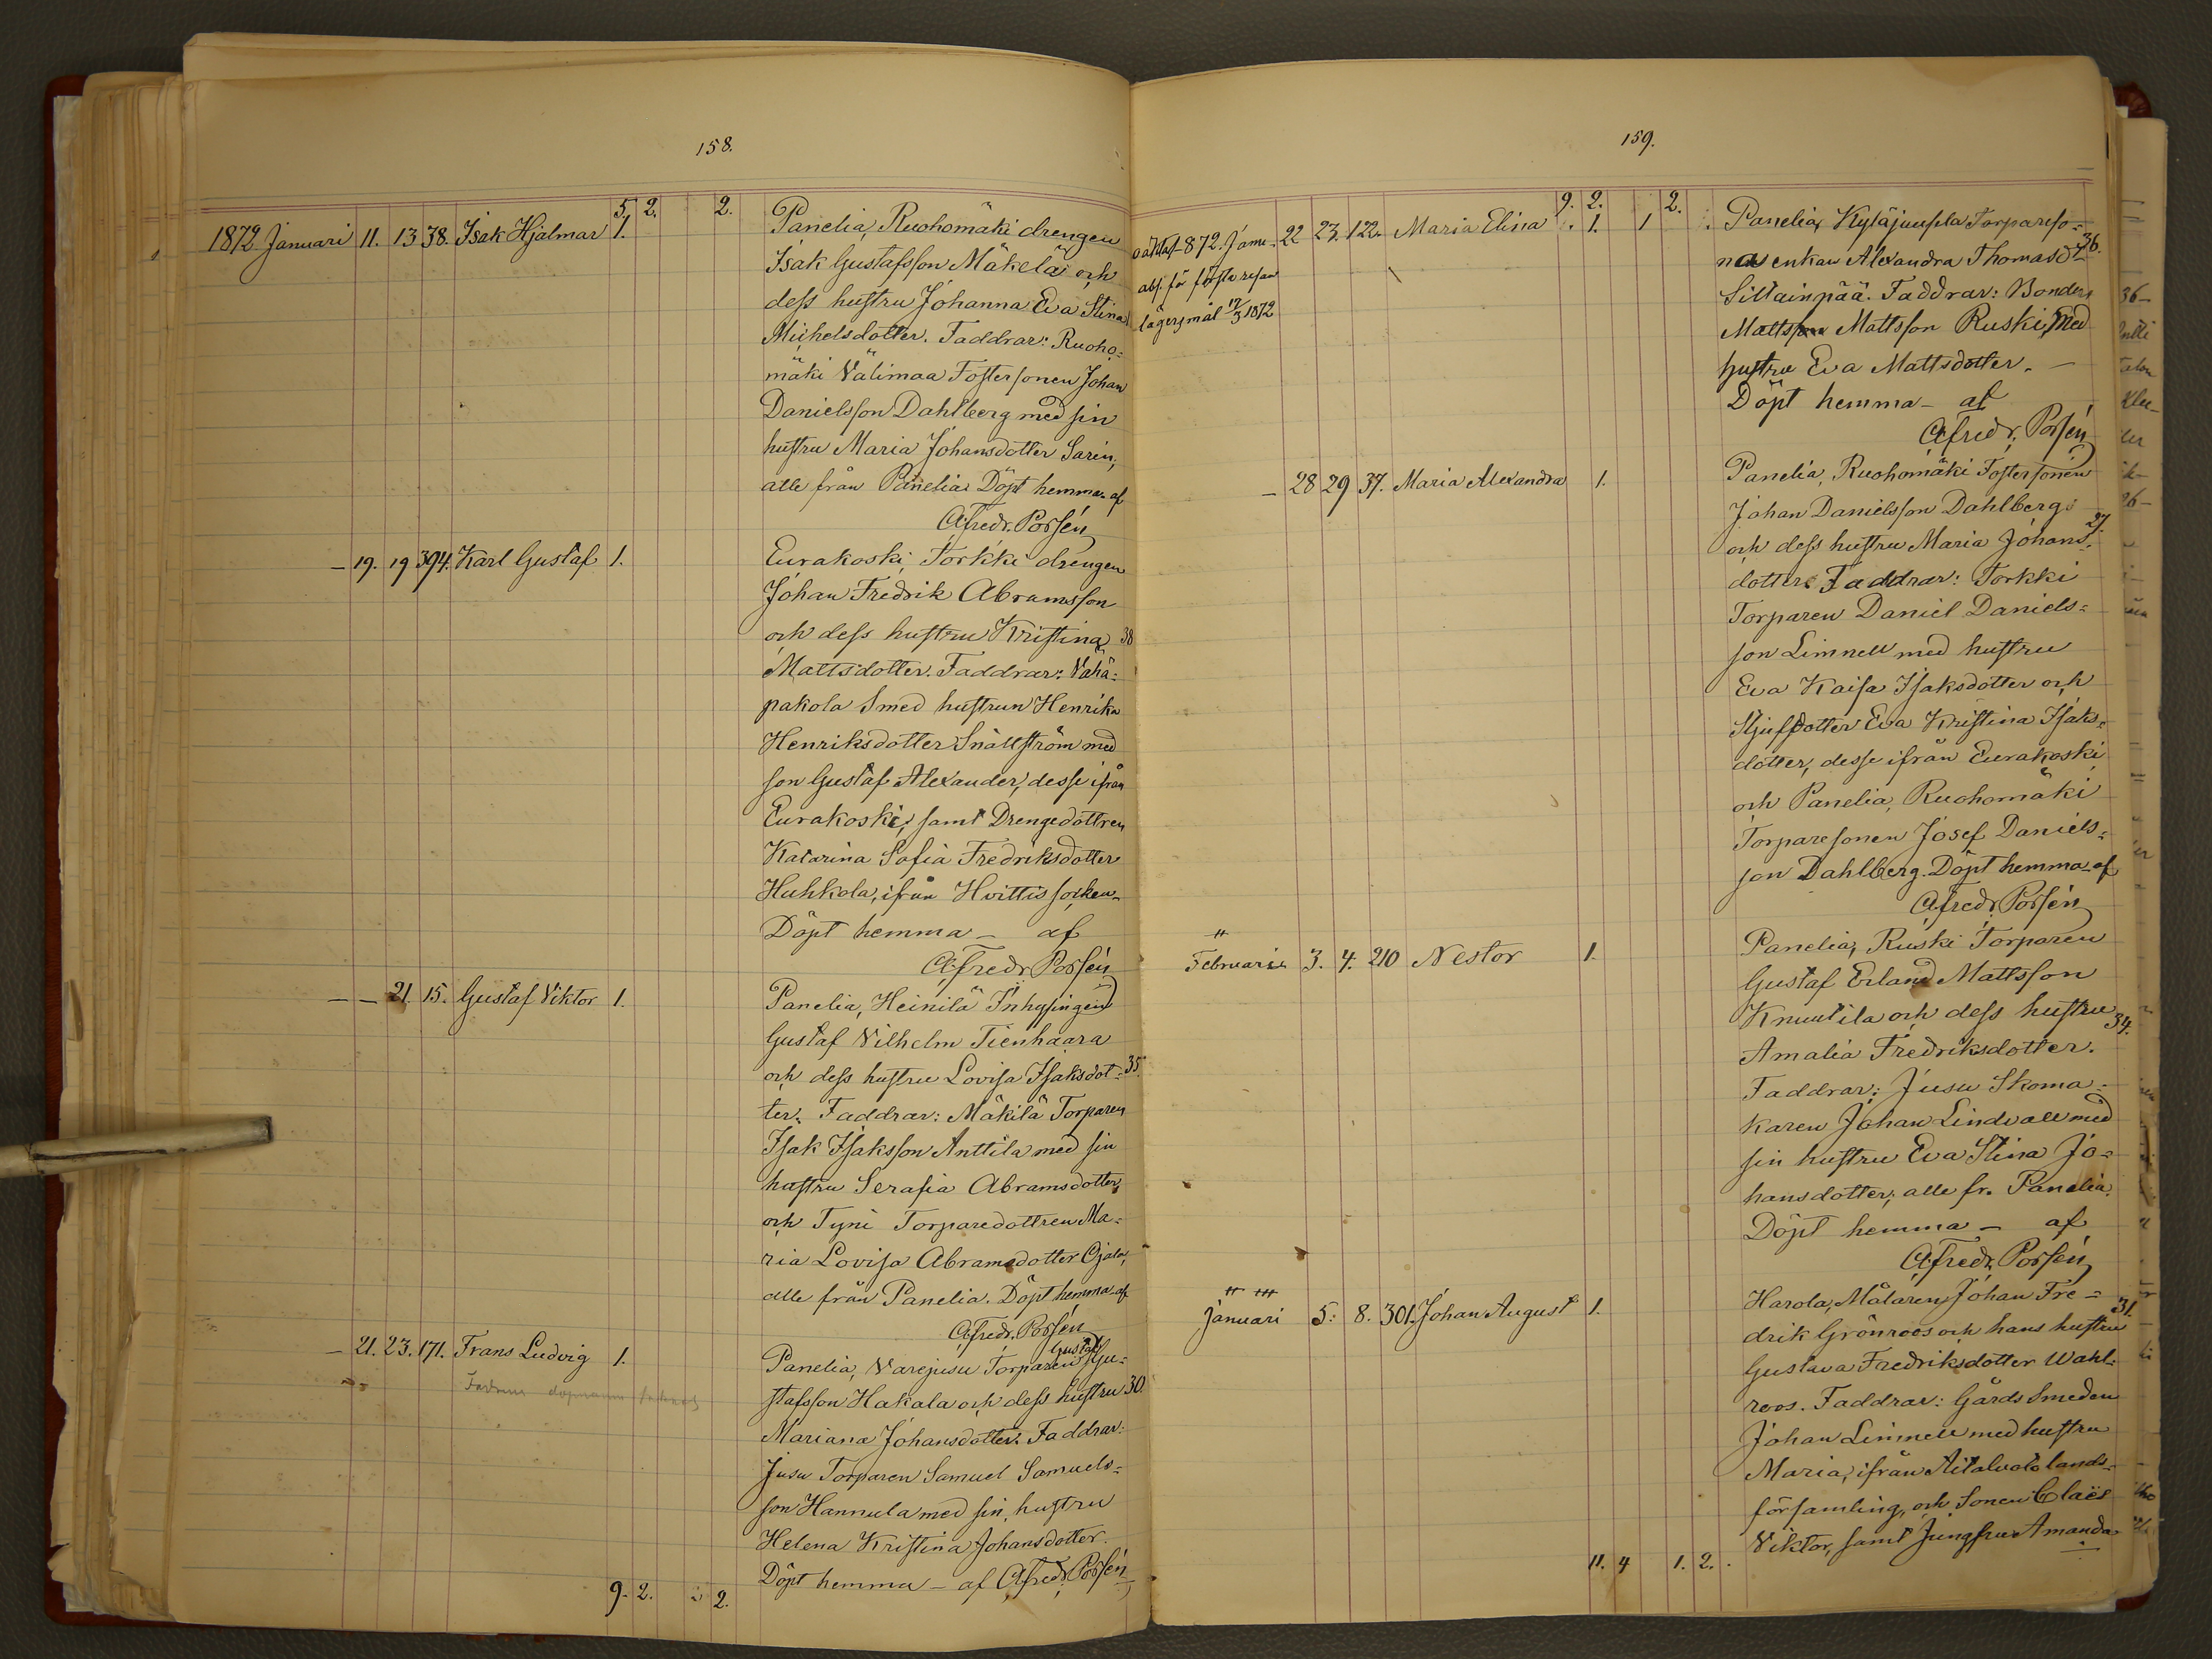 158.
5. 2. 2.
1872 Januari 11. 13 38. Isak Hjalmar 1. Panelia, Ruohomäki drengen
Isak Gustafsson Mäkelä och
dess hustru Johanna Eva Stina
Michelsdotter. Faddrar: Ruoho=
mäki Välimaa Fostersonen Johan
Danielsson Dahlberg med sin
hustru Maria Johansdotter Sarin,
alle från Panelia. Döpt hemma af
Alfredr. Porsén
— 19. 19 394. Karl Gustaf 1. Eurakoski, Torkki drengen
Johan Fredrik Abramsson
och dess hustru Kristina 38
Mattsdotter. Faddrar: Vähä=
pakola Smed hustrun Henrika
Henriksdotter Snällström med
son Gustaf Alexander, desse ifrån
Eurakoski, samt Drengedottren
Katarina Sofia Fredriksdotter
Huhkola, ifrån Hvittis socken.
Döpt hemma — af
Alfredr. Porsén
— — 21. 15. Gustaf Viktor 1. Panelia, Heinilä Inhysingen
Gustaf Vilhelm Tienhaara
och dess hustru Lovisa Isaksdot= 35.
ter. Faddrar: Mäkilä Torparen
Isak Isaksson Anttila med sin
hustru Serafia Abramsdotter
och Tyni Torparedottren Ma=
ria Lovisa Abramsdotter Ojala,
alle från Panelia. Döpt hemma af
Alfredr. Porsén
— 21. 23. 171. Frans Ludvig 1. Panelia, Varejusu Torparen Gustaf Gu=
stafsson Hakala och dess hustru 30.
Mariana Johansdotter. Faddrar:
Jusu Torparen Samuel Samuels=
son Hannula med sin hustru
Helena Kristina Johansdotter.
Döpt hemma — af Alfredr. Porsén
9. 2. 2.
159.
9. 2. 2.
oäkta 1872. Janu- 22 23. 122. Maria Elina 1. 1 Panelia, Kyläjuusela Torpareso=
abs. för första resan
lägersmål 17/3 1872
nas enkan Alexandra Thomasd:r 36.
Sillainpää. Faddrar: Bonden
Matts Mattsson Ruski, med
hustru Eva Mattsdotter. —
Döpt hemma — af
Alfredr. Porsén
— 28 29 37. Maria Alexandra 1. Panelia, Ruohomäki Fostersonen
Johan Danielsson Dahlberg
och dess hustru Maria Johans= 27.
dotter. Faddrar: Torkki
Torparen Daniel Daniels=
son Limnell med hustru
Eva Kaisa Isaksdotter och
Stjufdotter Eva Kristina Isaks=
dotter, desse ifrån Eurakoski
och Panelia, Ruohomäki
Torparesonen Josef Daniels=
son Dahlberg. Döpt hemma af
Alfredr. Porsén
Februari 3. 4. 210 Nestor 1. Panelia, Ruski Torparen
Gustaf Erland Mattsson
Knuutila och dess hustru 34.
Amalia Fredriksdotter.
Faddrar: Jusu Skoma=
karen Johan Lindvall med
sin hustru Eva Stina Jo=
hansdotter; alle fr. Panelia.
Döpt hemma — af
Alfredr. Porsén
Januari 5. 8. 301. Johan August 1. Harola, Målaren Johan Fre=
drik Grönroos och hans hustru 31.
Gustava Fredriksdotter Wahl=
roos. Faddrar: Gårds Smeden
Johan Limnell med hustru
Maria, ifrån lands=
församling, och Sonen Claës
Viktor, samt Jungfru Amanda
11. 4 1. 2.